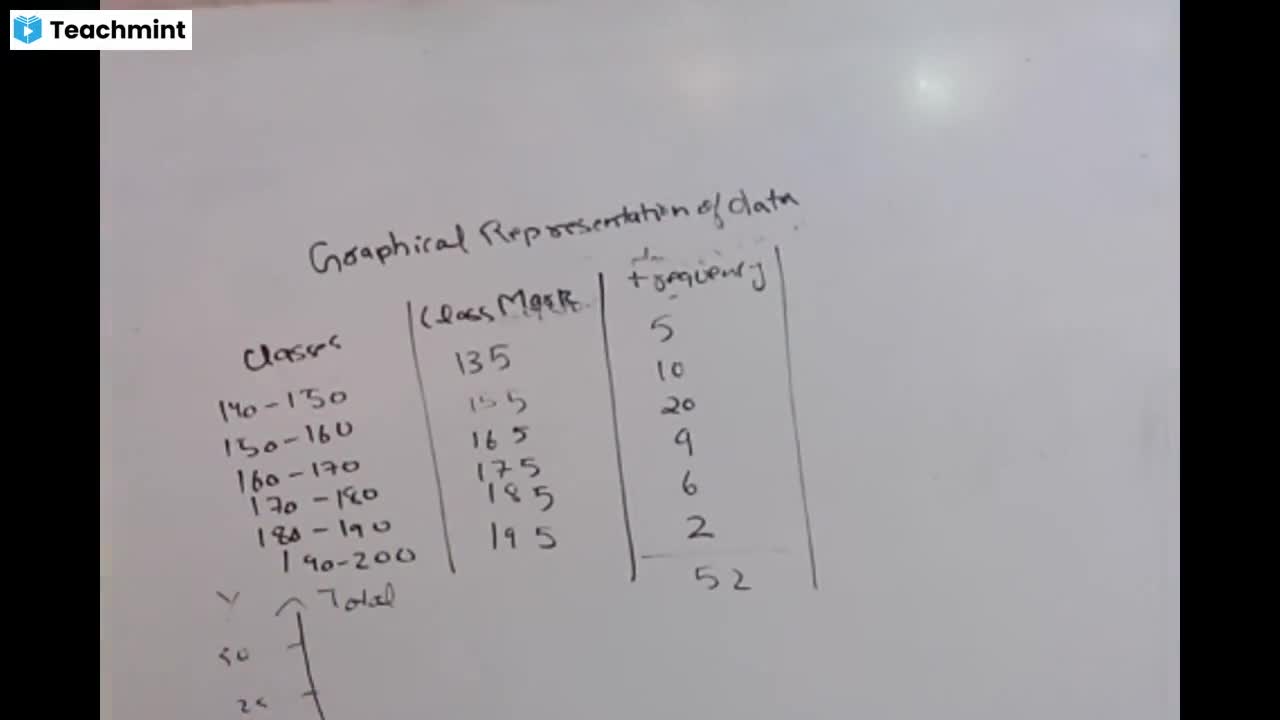 Teachmint
Graphical Representation of data
Classes Class Mark frequency
140-150 135 5
150-160 155 10
160-170 165 20
170-180 175 9
180-190 185 6
190-200 195 2
Total 52
Y